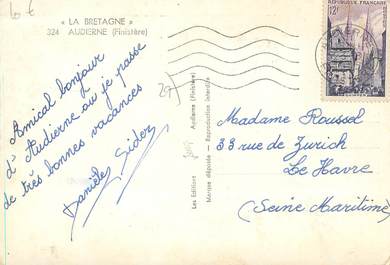 10 €
« LA BRETAGNE »
324 AUDIERNE (Finistère)
Amical bonjour
d'Audierne où je passe
de très bonnes vacances
Danièle Sider
29
Les Editions
Audierne (Finistère)
Marque déposée - Reproduction interdite
REPUBLIQUE FRANÇAISE
12F
Madame Roussel
33 rue de Zurich
Le Havre
(Seine Maritime)